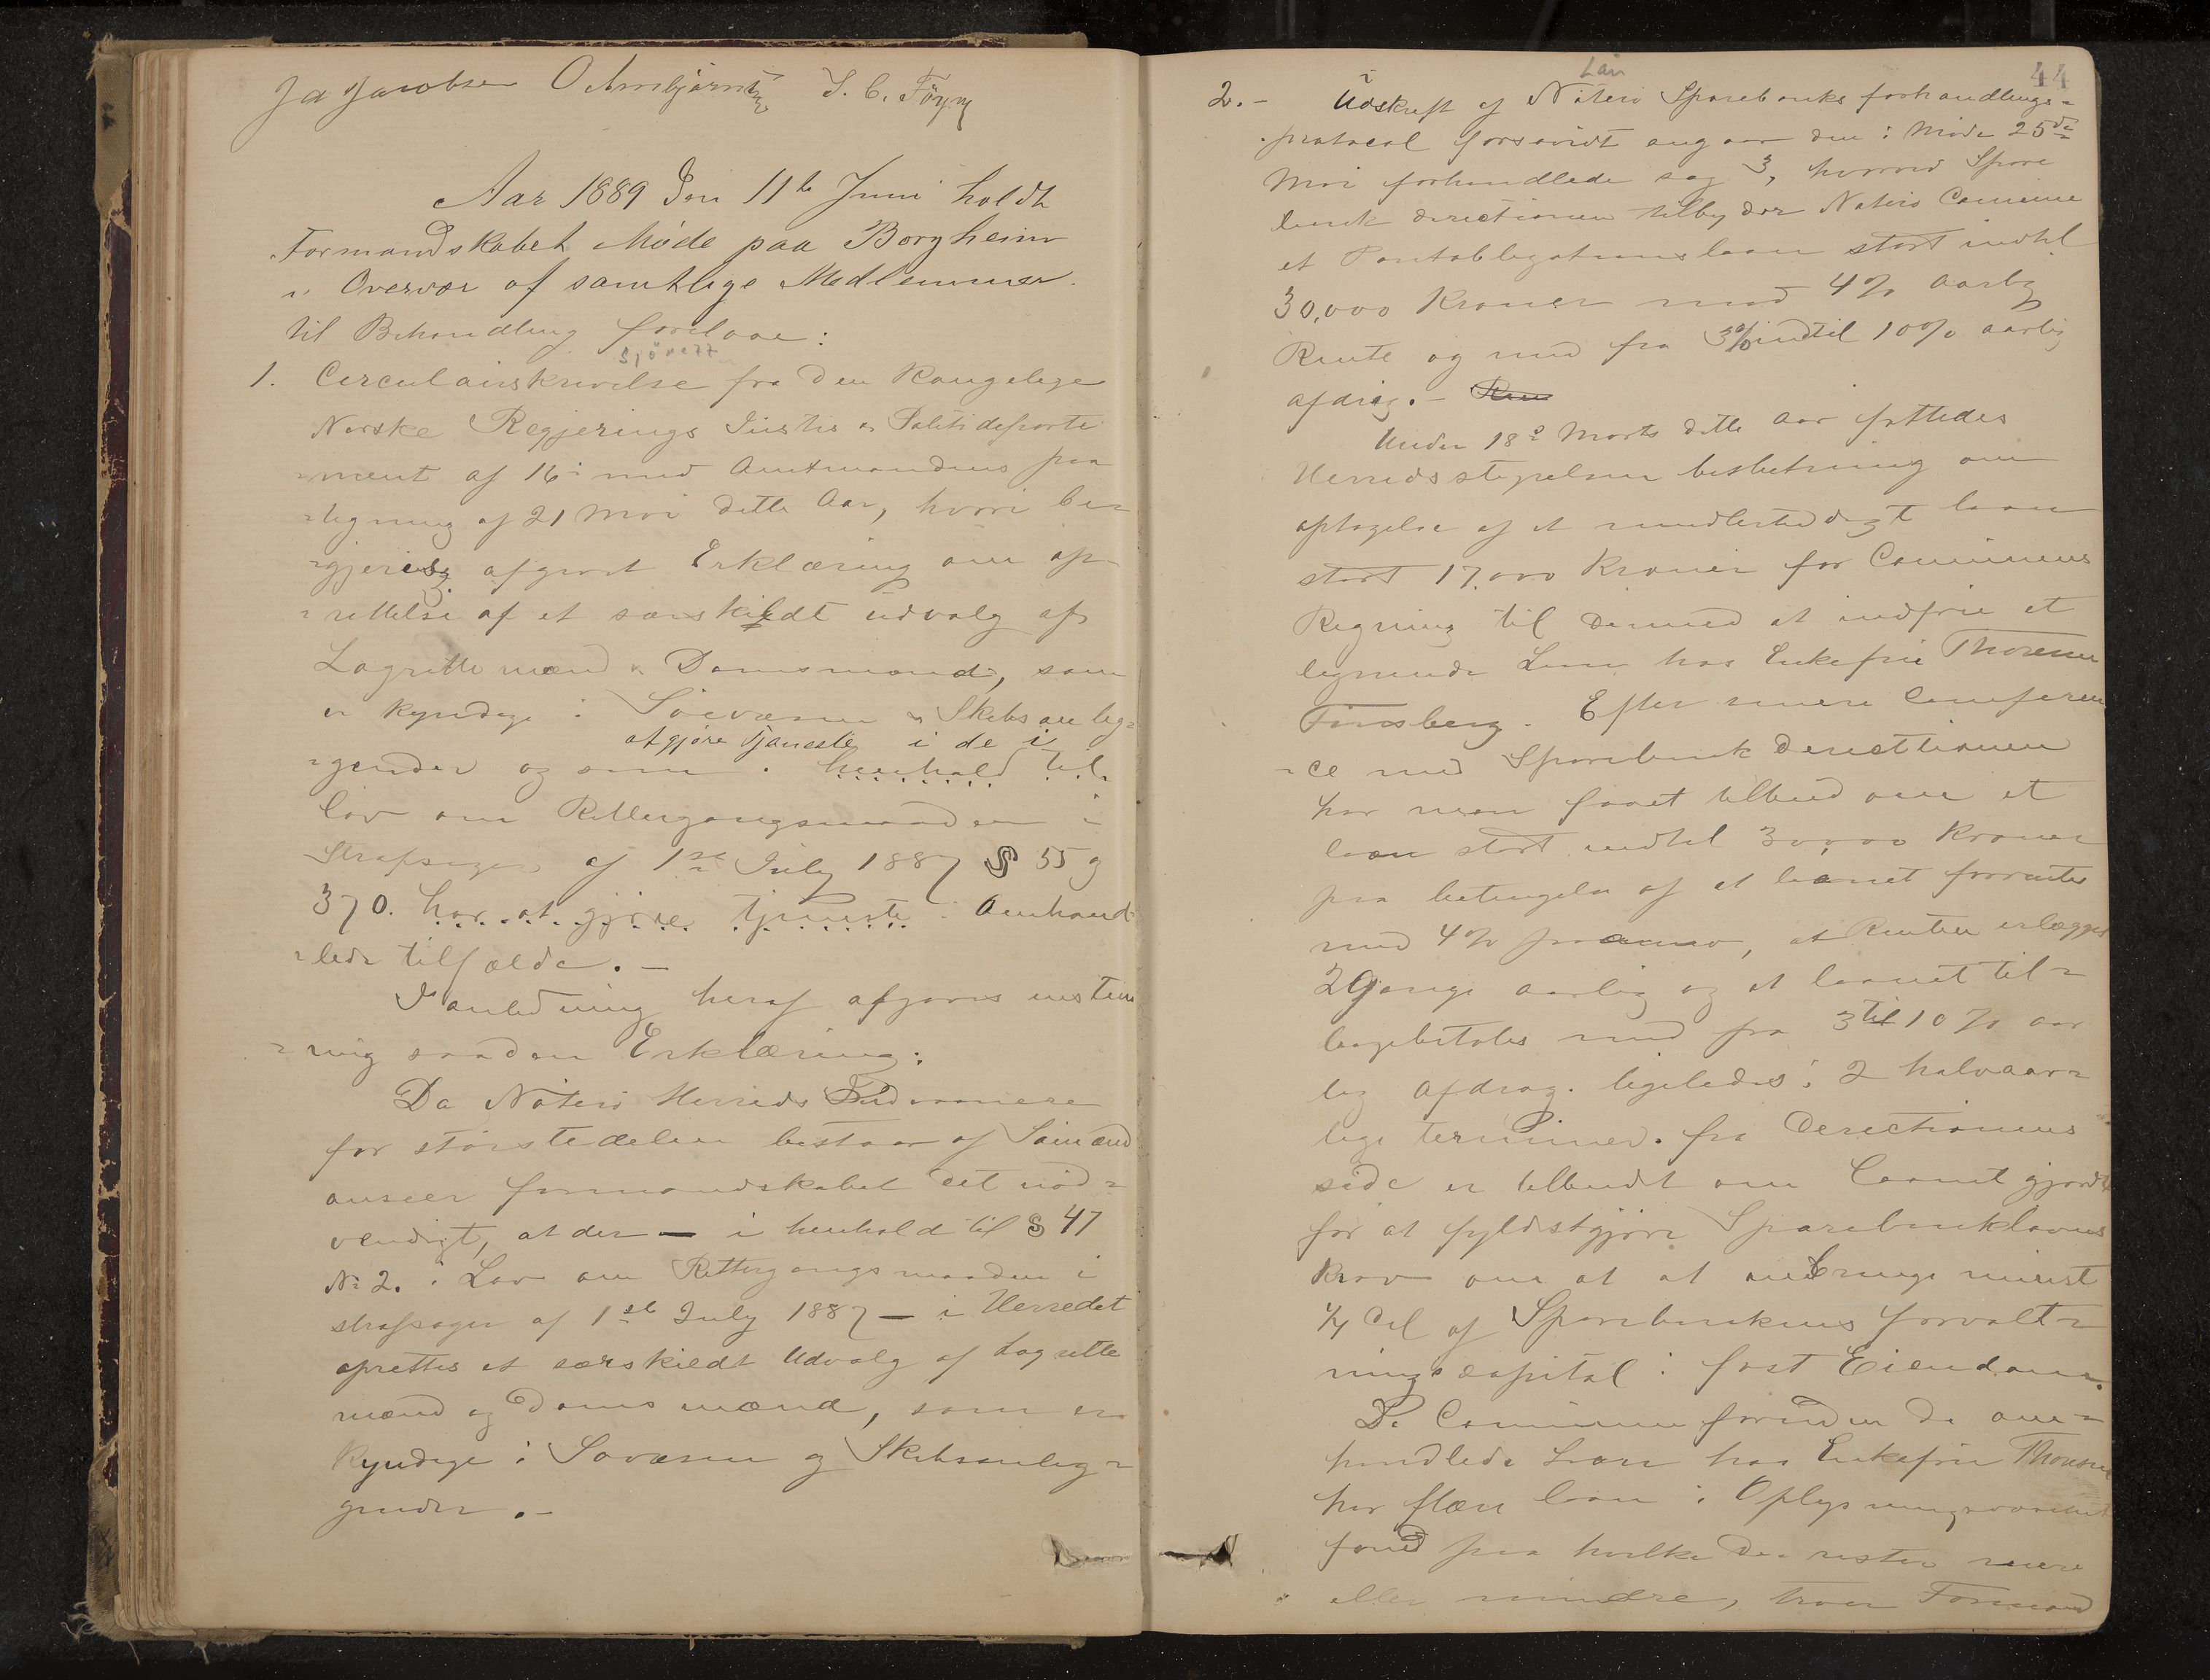 Ja Jacobsen O Arnbjørnsen S. C. Föyn
Aar 1889 Den 11te Juni holdt
Formandskabet Møde paa Borgheim
i Overvær af samtlige Medlemmer.
til Behandling forelaae:
Sjörett
1. Circulairskrivelse fra den Kongelige
Norske Regjerings Justis & Politideparte
=ment af 16 med Amtmandens paa
=tegning af 21 Mai dette Aar, hvori be=
=gjeres afgivet Erklæring om op=
=rettelse af et særskildt udvalg af
Lagrettemænd & Domsmænd, som
er kyndige i Søevæsen & Skibsanleg=
at gjøre Tjaneste i de i
=gender og som i henhold til
lov om Rettergangsmaaden i
Strafsager af 1ste July 1887 § 35 og
370. har at gjøre tjeneste i Omhand
=lede tilfælde. –
I anledning heraf afgaves enstem
=mig saadan Erklæring:
Da Nøterø Herreds Indvaanere
for størstedelen bestaar af Sømænd
anseer formandskabet det nød=
vendigt, at der – i henhold til § 47
No 2. i Lov om Rettergangsmaaden i
strafsager af 1ste July 1887 – i Herredet
oprettes et særskildt Udvalg af Lagrette
mænd og Domsmænd, som er
kyndige i Søvæsen og Skibsanleg=
gender. –
44
Lån
2. – Udskrift af Nøterø Sparebanks forhandlings=
protocal forsavidt angaar den i Møde 25de
Mai forhandlede sag 3, hvorved Spare
bank directionen tilbyder Nøterø Comune
et Pantobligationslaan stort indtil
30,000 Kroner mod 4% aarlig
Rente og med fra 3% indtil 10% aarlig
afdrag. –
Under 18de Marts dette Aar fattedes
Herredsstyrelsen beslutning om
optagelse af et laan
stort 17.000 Kroner for Comunens
Regning til dermed at indfrie et
lignende Laan hos Enkefru Thoresen
Tønsberg. Efter nærere Conferen
=ce med Sparebank Directionen
har man faaet tilbud om et
laan stort indtil 30,000 Kroner
paa betingelse af at laanet forrentes
med 4% pr anno, at Renten erlægges
2 Gange aarlig og at laanet til=
bagebetales med fra 3 til 10% aar
lig afdrag. ligeledes i 2 halvaar=
lige terminer. fra Directionens
side er tilbudt om Laanet gjordt
for at fyldestgjøre Sparebanklovens
Krav om at at anbringe minst
1/4 Del af Sparebankens forvalt=
ningscapital i fast Eiendom.
Da Comunen foruden de om=
handlede Laan hos Enkefru Thoresen
har flere laan i Oplysningsvæsenets
fond paa hvilke der rester mere
eller mindre, troer Formand